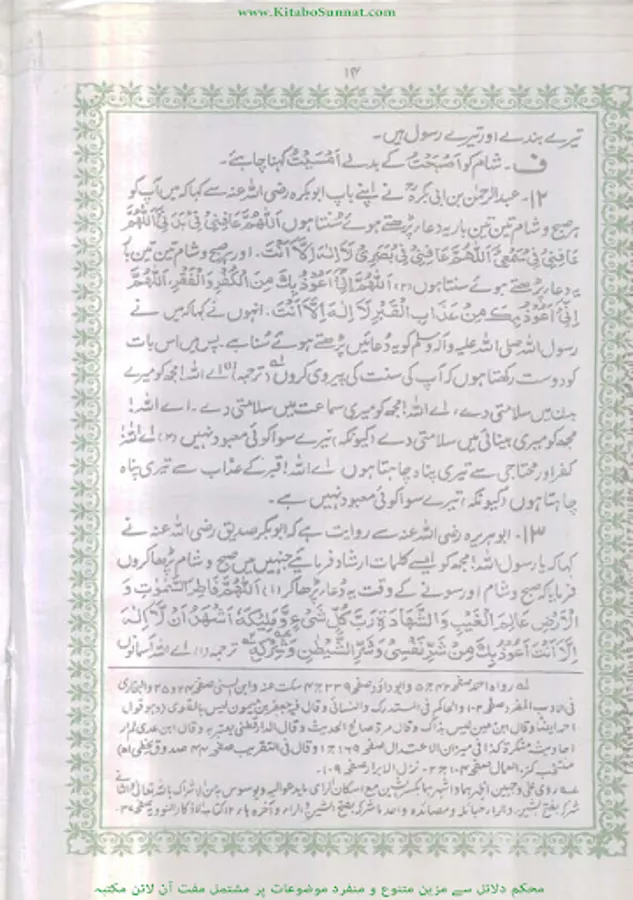 www.KitaboSunnat.com
۱۴
تیرے بندے اور تیرے رسول ہیں۔
ف۔ شام کو اَصْبَحْتُ کے بدلے اَمْسَیْتُ کہنا چاہئے۔
۱۲۔ عبدالرحمٰن بن ابی بکرہ نے اپنے باپ ابوبکرہ رضی اللہ عنہ سے کہا کہ میں آپ کو
ہر صبح و شام تین تین بار یہ دعاء پڑھتے ہوئے سُنتا ہوں اَللّٰهُمَّ عَافِنِیْ فِیْ بَدَنِیْ اَللّٰهُمَّ
عَافِنِیْ فِیْ سَمْعِیْ اَللّٰهُمَّ عَافِنِیْ فِیْ بَصَرِیْ لَا اِلٰهَ اِلَّا اَنْتَ۔ اور ہر صبح و شام تین تین بار
یہ دعاء پڑھتے ہوئے سنتا ہوں (۲) اَللّٰهُمَّ اِنِّیْ اَعُوْذُ بِكَ مِنَ الْكُفْرِ وَالْفَقْرِ، اَللّٰهُمَّ
اِنِّیْ اَعُوْذُ بِكَ مِنْ عَذَابِ الْقَبْرِ لَا اِلٰهَ اِلَّا اَنْتَ۔ انہوں نے کہا کہ میں نے
رسول اللہ صلی اللہ علیہ و آلہ وسلم کو یہ دعائیں پڑھتے ہوئے سُنا ہے۔ پس میں اس بات
کو دوست رکھتا ہوں کہ آپ کی سنت کی پیروی کروں (ترجمہ) (۱) اے اللہ! مجھ کو میرے
بدن میں سلامتی دے، اے اللہ! مجھ کو میری سماعت میں سلامتی دے۔ اے اللہ!
مجھ کو میری بینائی میں سلامتی دے (کیونکہ) تیرے سوا کوئی معبود نہیں (۲) اے اللہ!
کفر اور محتاجی سے تیری پناہ چاہتا ہوں اے اللہ! قبر کے عذاب سے تیری پناہ
چاہتا ہوں (کیونکہ) تیرے سوا کوئی معبود نہیں ہے۔
۱۳۔ ابوہریرہ رضی اللہ عنہ سے روایت ہے کہ ابوبکر صدیق رضی اللہ عنہ نے
کہا کہ یا رسول اللہ! مجھ کو ایسے کلمات ارشاد فرمائیے جنہیں میں صبح و شام پڑھا کروں
فرمایا کہ صبح و شام اور سونے کے وقت یہ دُعاء پڑھا کر (۱) اَللّٰهُمَّ فَاطِرَ السَّمٰوٰتِ وَ
الْاَرْضِ عَالِمَ الْغَيْبِ وَالشَّهَادَةِ رَبَّ كُلِّ شَیْءٍ وَّمَلِيْكَهٗ اَشْهَدُ اَنْ لَّا اِلٰهَ
اِلَّا اَنْتَ اَعُوْذُ بِكَ مِنْ شَرِّ نَفْسِیْ وَشَرِّ الشَّيْطٰنِ وَشِرْكِهٖ ترجمہ (۱) اے اللہ! آسمانوں
رواہ احمد صفحہ ۴۲ ج ۵ و ابوداؤد صفحہ ۳۳۹ ج ۴ سکت عنہ و ابن السنی صفحہ ۲۴ و ۲۵ والبخاری
فی الادب المفرد صفحہ ۱۰۲ والحاکم فی المستدرک والنسائی وقال فی جعفر بن میمون لیس بالقوی
وقال ابن معین لیس بذاک وقال مرة صالح الحدیث وقال الدارقطنی یعتبر بہ وقال ابن عدی لم ار
احادیثہ منکرة کذا فی میزان الاعتدال صفحہ ۱۶۹ ج ۱ وقال فی التقریب صفحہ ۴۴ صدوق یخطئ
منتخب کنز العمال صفحہ ج ۲۔ نزل الابرار صفحہ ۱۰۹۔
روی علی وجہین
محکم دلائل سے مزین متنوع و منفرد موضوعات پر مشتمل مفت آن لائن مکتبہ